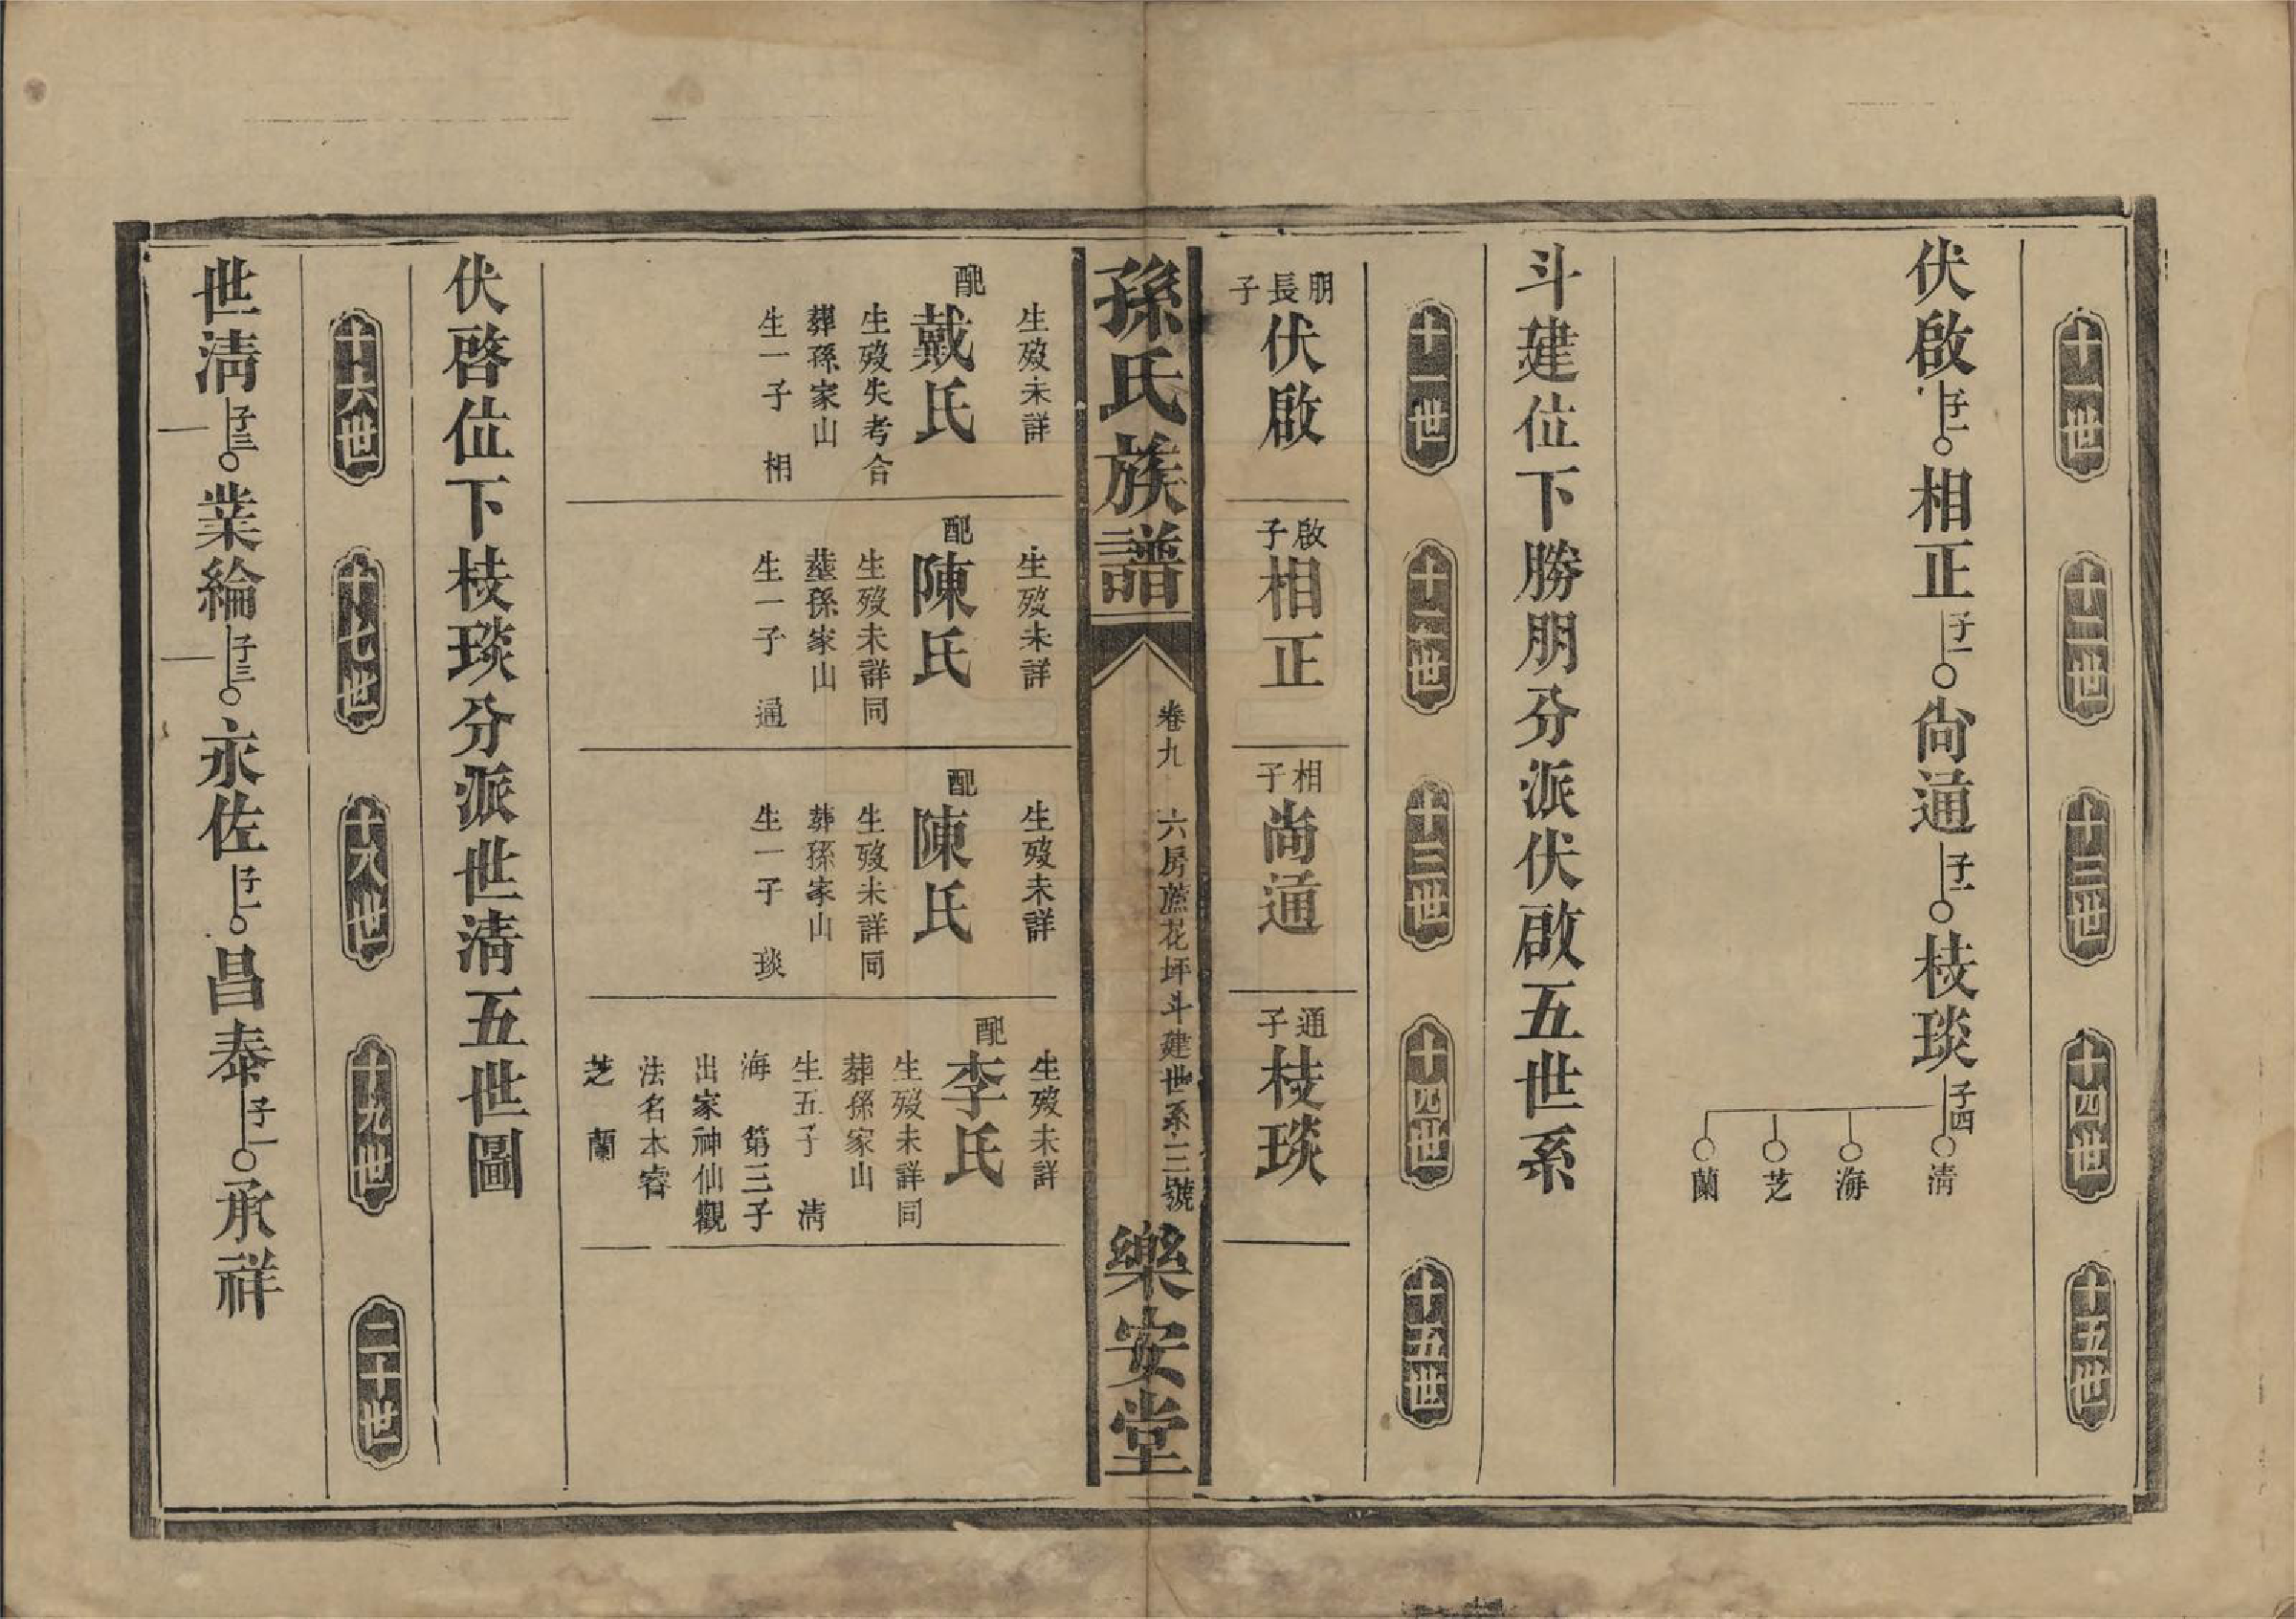 十一世 十二世 十三世 十四世 十五世
伏啟 子一 相正 子一 尙通 子一 枝琰 子四 清
海
芝
蘭
斗建位下勝朋分派伏啟五世系
十一世 十二世 十三世 十四世 十五世
朋長子 伏啟
啟子 相正
相子 尚通
通子 枝琰
孫氏族譜 卷九 六房蔗花坪斗建世系 三號 樂安堂
生歿未詳
配戴氏
生歿失考合
葬孫家山
生一子 相
生歿未詳
配陳氏
生歿未詳同
塟孫家山
生一子 通
生歿未詳
配陳氏
生歿未詳同
葬孫家山
生一子 琰
生歿未詳
配李氏
生歿未詳同
葬孫家山
生五子 清
海 第三子
出家神仙觀
法名本睿
芝 蘭
伏啓位下枝琰分派世淸五世圖
十六世 十七世 十八世 十九世 二十世
世淸 子三 業綸 子三 永佐 子一 昌泰 子一 承祥